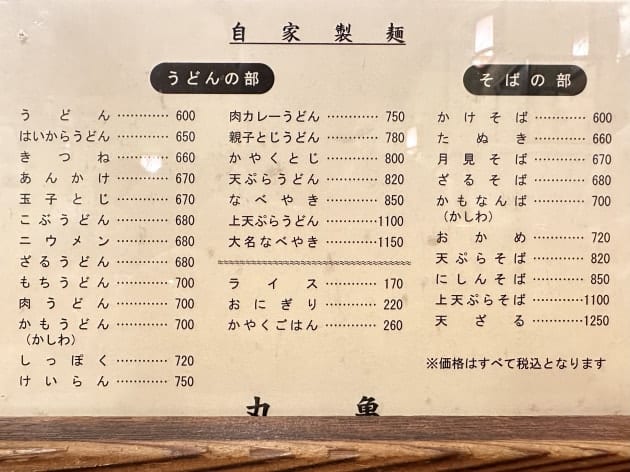 自家製麺
うどんの部
うどん…………600
はいからうどん…………650
きつね…………660
あんかけ…………670
玉子とじ…………670
こぶうどん…………680
ニウメン…………680
ざるうどん…………680
もちうどん…………700
肉うどん…………700
かもうどん…………700
(かしわ)
しっぽく…………720
けいらん…………750
肉カレーうどん…………750
親子とじうどん…………780
かやくとじ…………800
天ぷらうどん…………820
なべやき…………850
上天ぷらうどん…………1100
大名なべやき…………1150
ライス…………170
おにぎり…………220
かやくごはん…………260
そばの部
かけそば…………600
たぬき…………660
月見そば…………670
ざるそば…………680
かもなんば…………700
(かしわ)
おかめ…………720
天ぷらそば…………820
にしんそば…………850
上天ぷらそば…………1100
天ざる…………1250
※価格はすべて税込となります